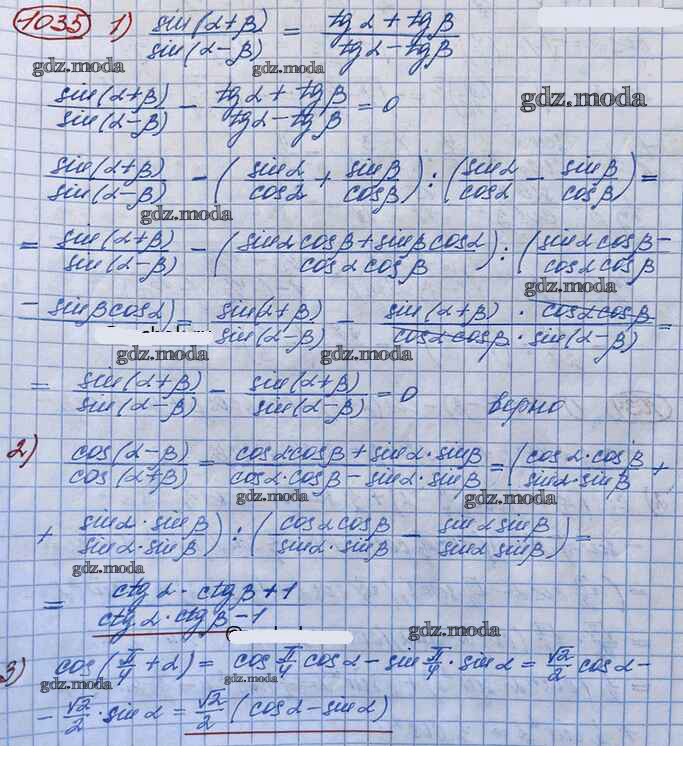 1035 1) sin(α+β)/sin(α−β) = (tgα + tgβ)/(tgα − tgβ)
gdz.moda gdz.moda
sin(α+β)/sin(α−β) − (tgα + tgβ)/(tgα − tgβ) = 0
gdz.moda
sin(α+β)/sin(α−β) − (sinα/cosα + sinβ/cosβ) : (sinα/cosα − sinβ/cosβ) =
gdz.moda
= sin(α+β)/sin(α−β) − ((sinα cosβ + sinβ cosα)/(cosα cosβ)) : ((sinα cosβ −/cosα cosβ
gdz.moda
− sinβ cosα) = sin(α+β)/sin(α−β) − (sin(α+β) · cosα cosβ)/(cosα cosβ · sin(α−β)) =
gdz.moda gdz.moda
= sin(α+β)/sin(α−β) − sin(α+β)/sin(α−β) = 0 верно
gdz.moda
2) cos(α−β)/cos(α+β) = (cosα·cosβ + sinα·sinβ)/(cosα·cosβ − sinα·sinβ) = (cosα·cosβ/sinα·sinβ +
gdz.moda gdz.moda
+ sinα·sinβ/sinα·sinβ) : (cosα cosβ/sinα·sinβ − sinα sinβ/sinα sinβ) =
gdz.moda
= (ctgα · ctgβ + 1)/(ctgα · ctgβ − 1)
gdz.moda
3) cos(π/4 + α) = cos π/4 cosα − sin π/4 · sinα = √2/2 cosα −
gdz.moda gdz.moda
− √2/2 · sinα = √2/2 (cosα − sinα)